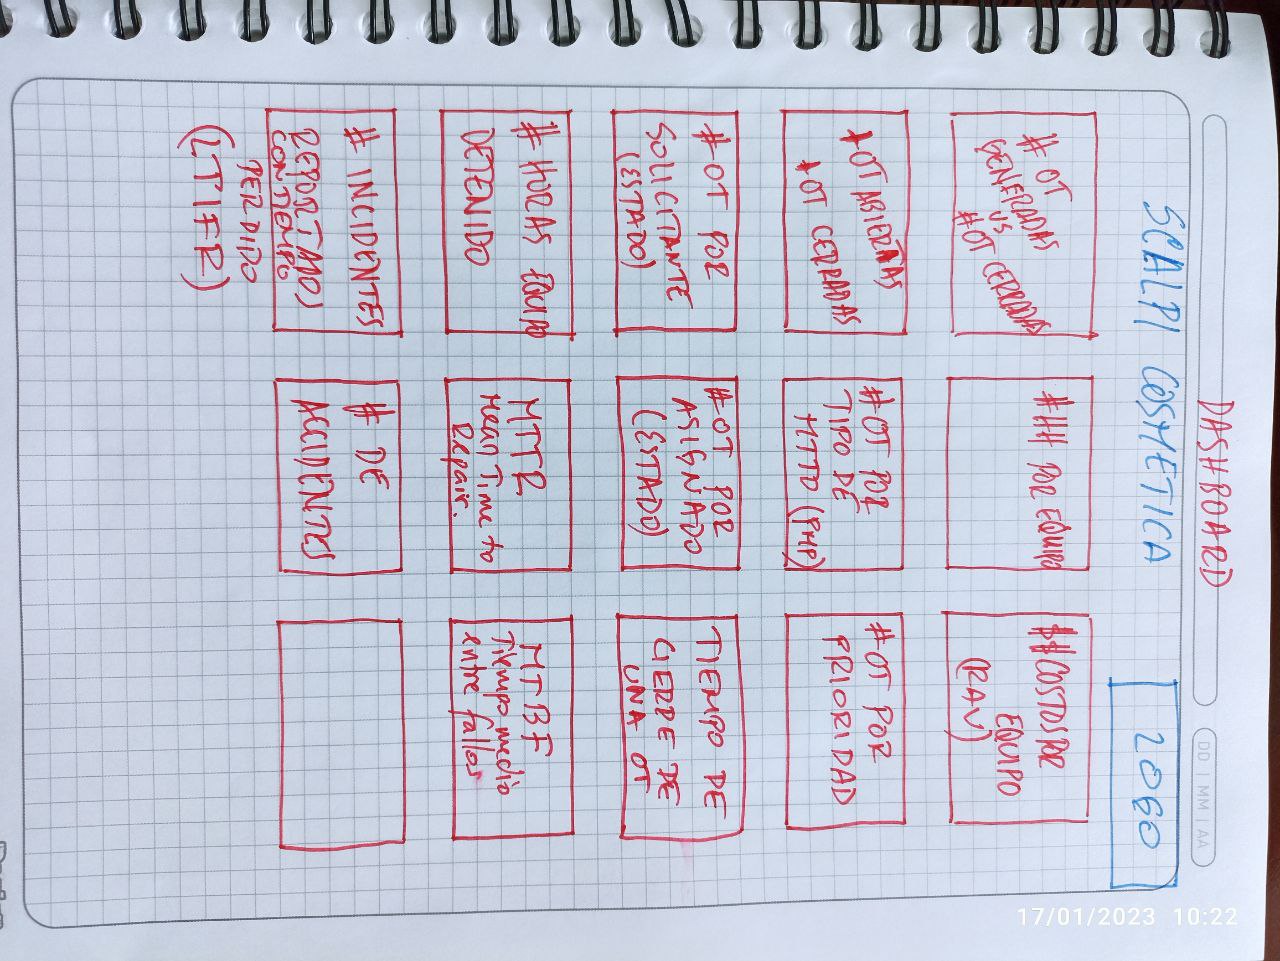 DASHBOARD
DD | MM | AA
SCALPI COSMETICA
2060
# OT
GENERADAS
VS
#OT CERRADAS
#HH POR EQUIPO
$# COSTOS POR
EQUIPO
(RAV)
OT ABIERTAS
OT CERRADAS
#OT POR
TIPO DE
MTTO (PMP)
#OT POR
PRIORIDAD
#OT POR
SOLICITANTE
(ESTADO)
#OT POR
ASIGNADO
(ESTADO)
TIEMPO DE
CIERRE DE
UNA OT
# HORAS EQUIPO
DETENIDO
MTTR
Mean Time to
Repair.
MTBF
Tiempo medio
entre fallos
# INCIDENTES
REPORTADOS
CON TIEMPO
PERDIDO
(LTIFR)
# DE
ACCIDENTES
17/01/2023 10:22